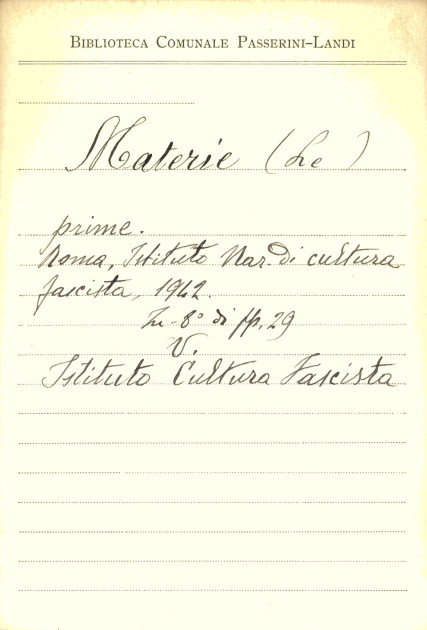 BIBLIOTECA COMUNALE PASSERINI-LANDI
Materie (Le)
prime.
Roma, Istituto Naz. di cultura
fascista, 1942.
In-8° di pp. 29
V.
Istituto Cultura Fascista